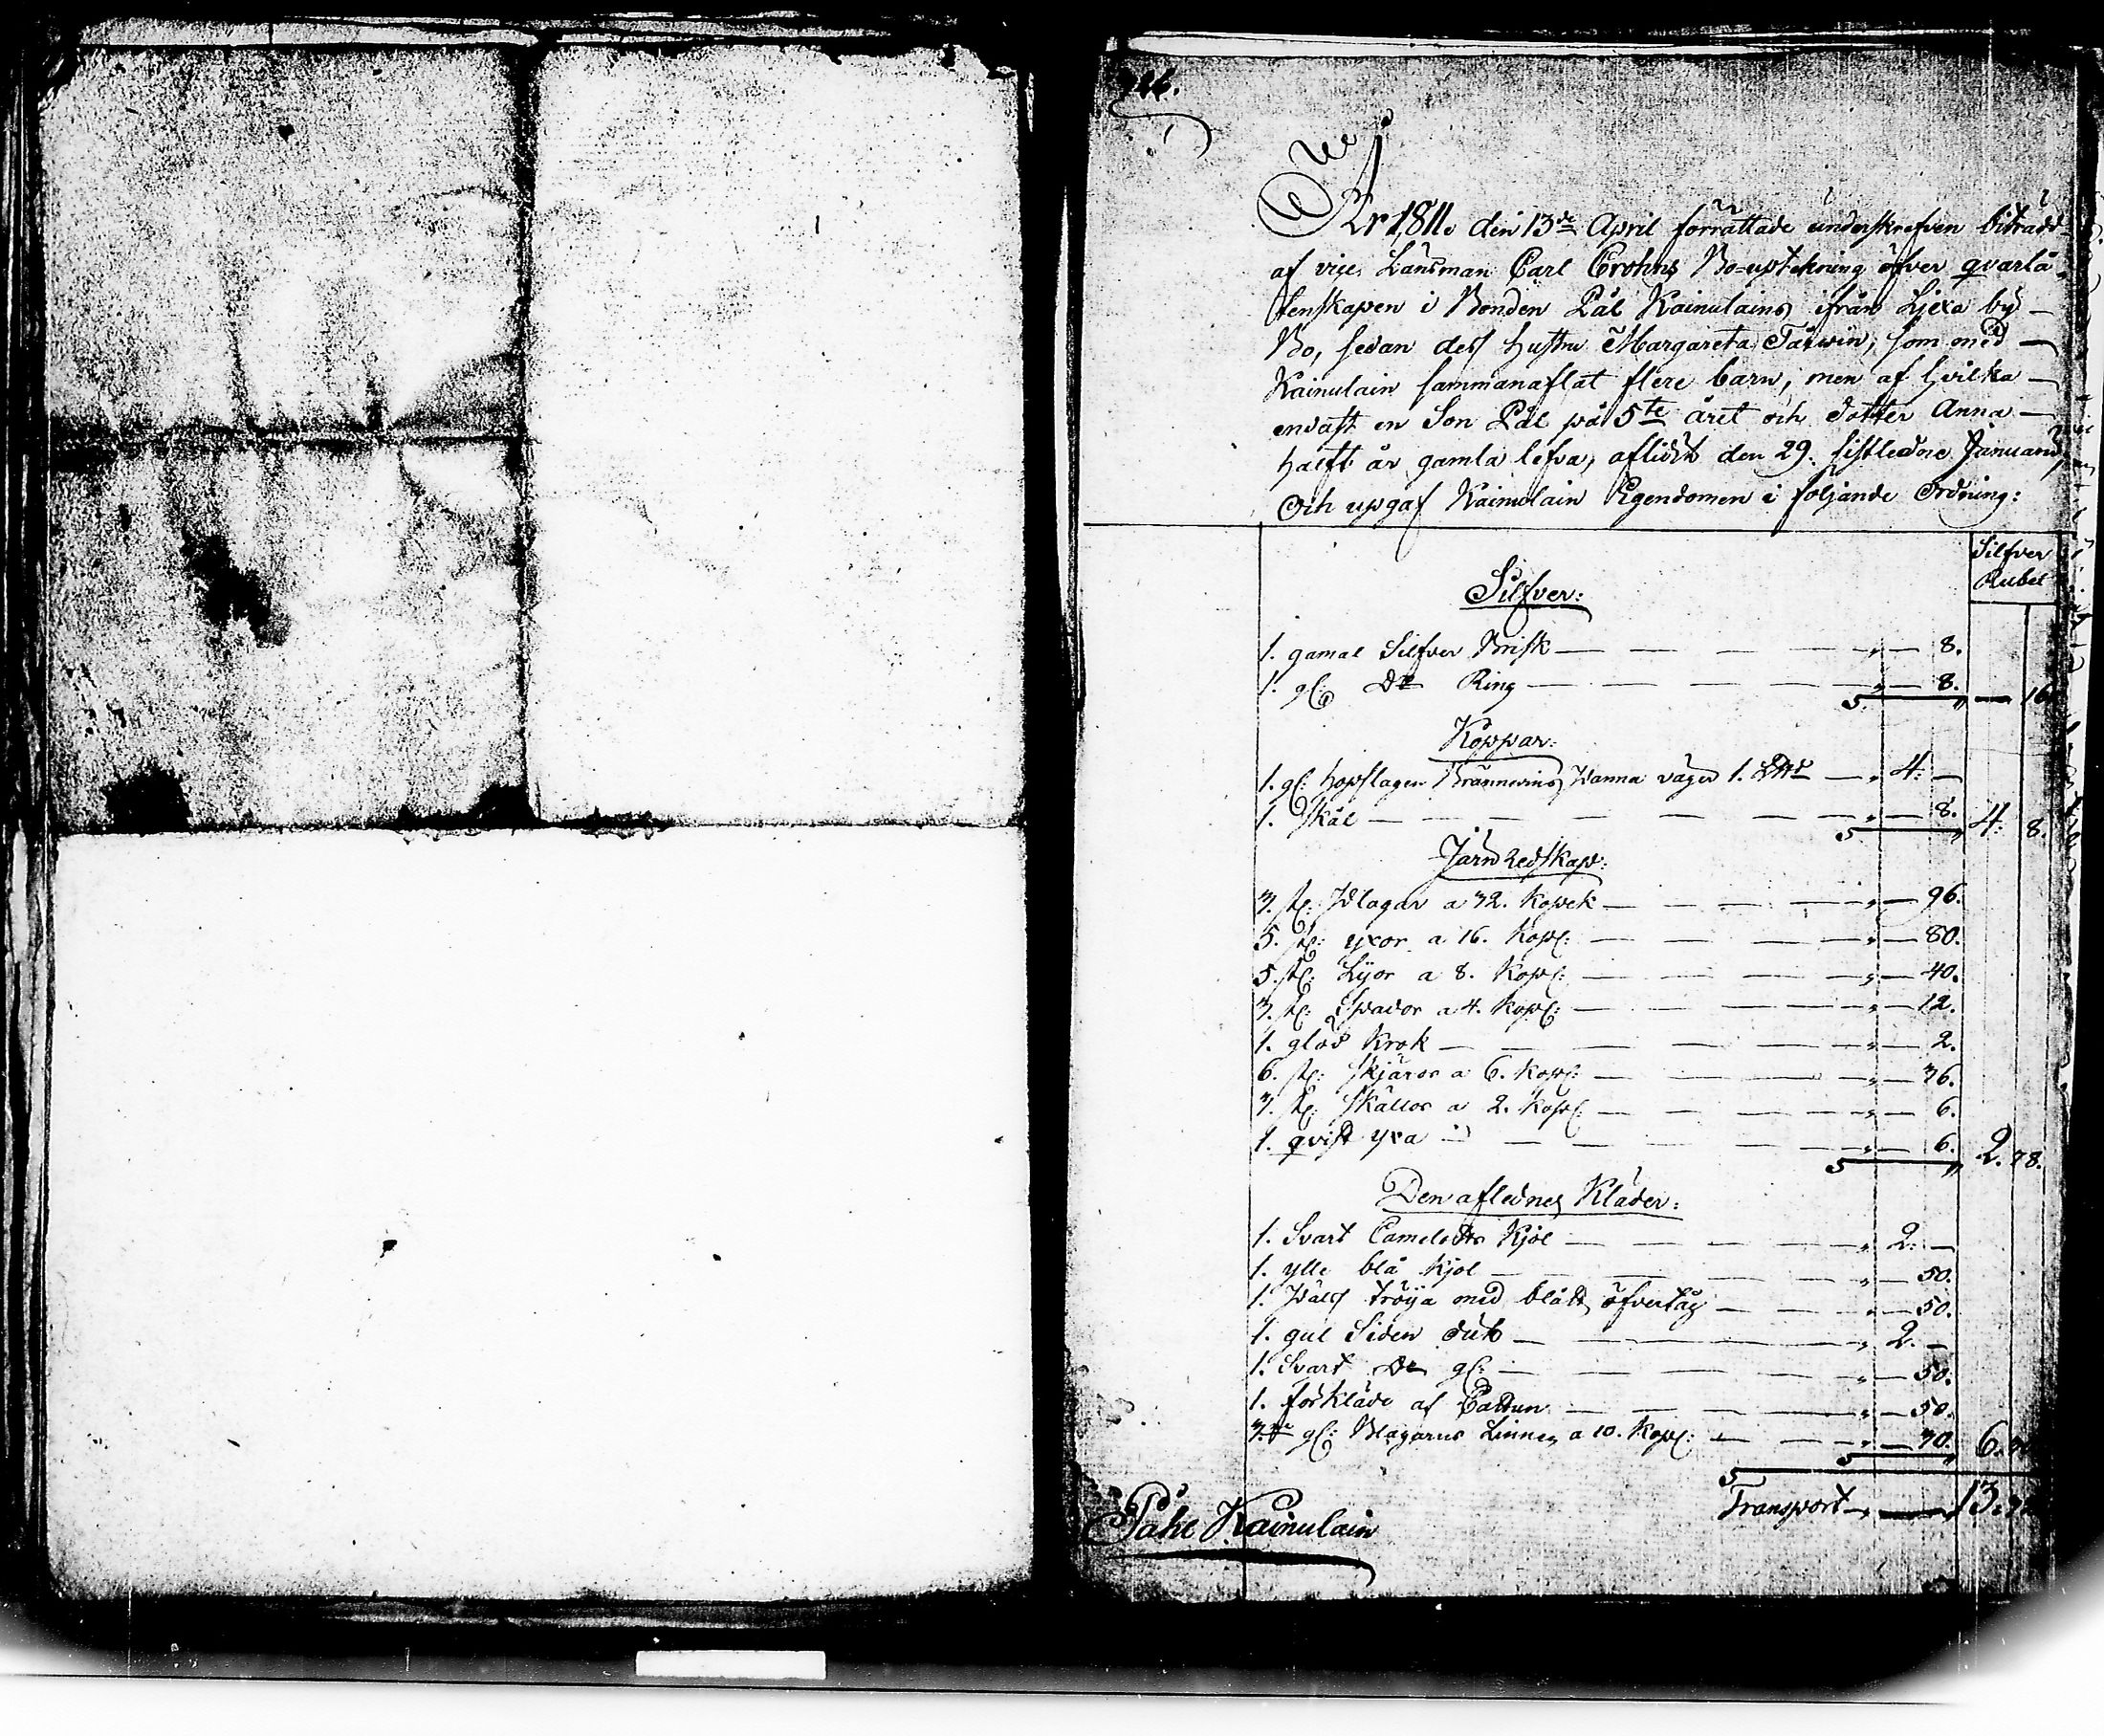 År 1811. den 13de April förrättade underskrefven biträdd
af vice Länsman Carl Crohns Bo-uptekning öfver qvarlå-
tenskapen i Bonden Pål Kainulains ifrån Lixa by
Bo, sedan dess Hustru Margareta Tarwin, som med
Kainulain sammanaflat flere barn, men af hvilka
endast en Son Pål på 5te året och dotter Anna
halft år gamla lefva, aflidit den 29. sistledne Januari,
Och upgaf Kainulain Egendomen i följande Ordning:
Silfver
Rubel
Silfver:
1. gamal Silfver Brisk — " — 8.
1. gl: Do Ring — " — 8. — 16
Koppar:
1. gl: hopslagen Brännerins Panna väger 1. — " 4. —
1. Skål — " — 8. 4. 8.
Järn Redskap:
3. st: Plogar a 32. Kopek — " — 96.
5. st: yxor a 16. Kop: — " — 80.
5. st: Lijor a 8. Kop: — " — 40.
3. st: Spador a 4. Kop: — " — 12.
1. glöd Krok — " — 2.
6. st: Skjäror a 6. Kop: — " — 36.
3. st: Skällor a 2. Kop: — " — 6.
1. qvist yxa — " — 6. 2. 78.
Den aflednes Kläder:
1. Svart Camelotts Kjol — " 2. —
1. ylle blå Kjol — " — 50.
1. Päls tröija med blått öfvertåg — " — 50.
1. gul Siden duk — " 2. —
1. Svart Do gl: — " — 50.
1. förkläde af Cattun — " — 50.
3. st gl: Blagarns Linnen a 10. Kop: — " — 30. 6. 30
Transport — 13.
Påhl Kainulain